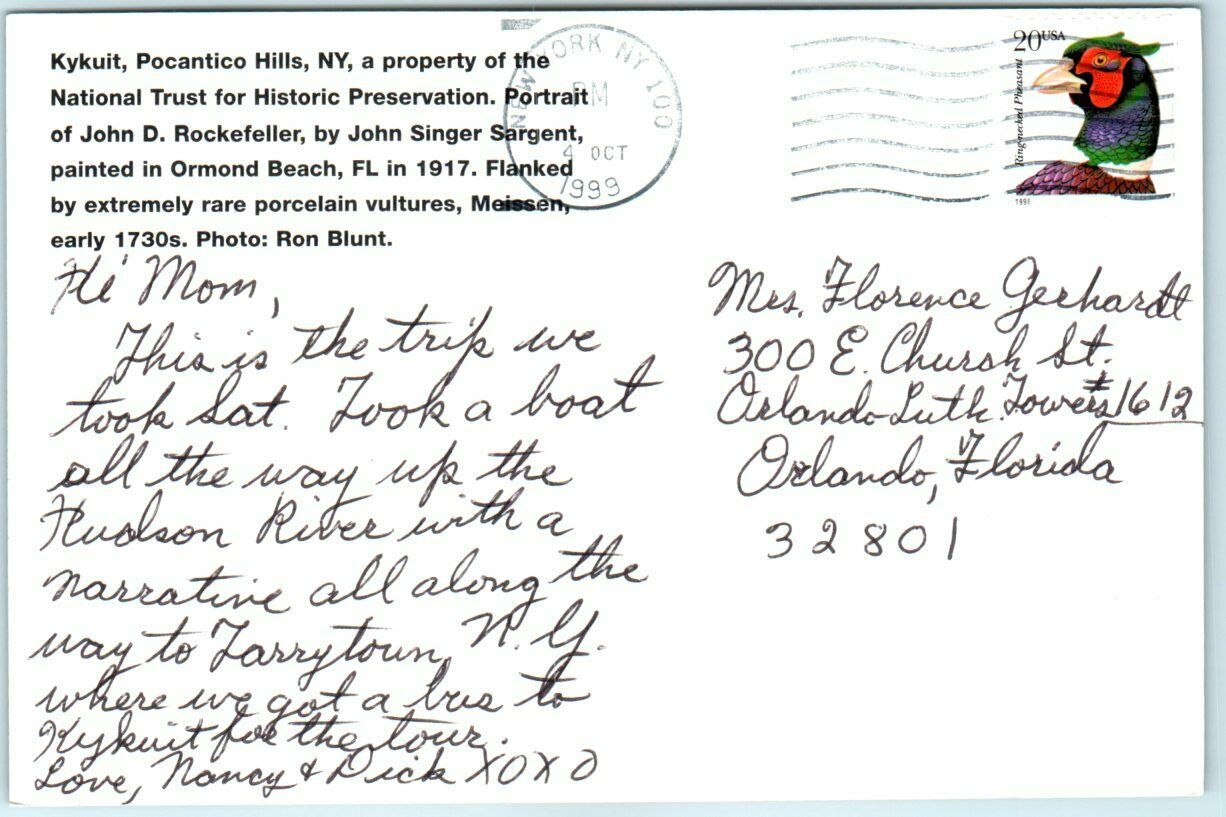 Kykuit, Pocantico Hills, NY, a property of the
National Trust for Historic Preservation. Portrait
of John D. Rockefeller, by John Singer Sargent,
painted in Ormond Beach, FL in 1917. Flanked
by extremely rare porcelain vultures, Meissen,
early 1730s. Photo: Ron Blunt.
NEW YORK NY 100
PM
4 OCT
1999
20USA
Ring-necked Pheasant
1998
Hi Mom,
This is the trip we
took Sat. Took a boat
all the way up the
Hudson River with a
narrative all along the
way to Tarrytown, N.Y.
where we got a bus to
Kykuit for the tour.
Love, Nancy & Dick XOXO
Mrs. Florence Gerhardt
300 E. Church St.
Orlando Luth. Towers #1612
Orlando, Florida
32801